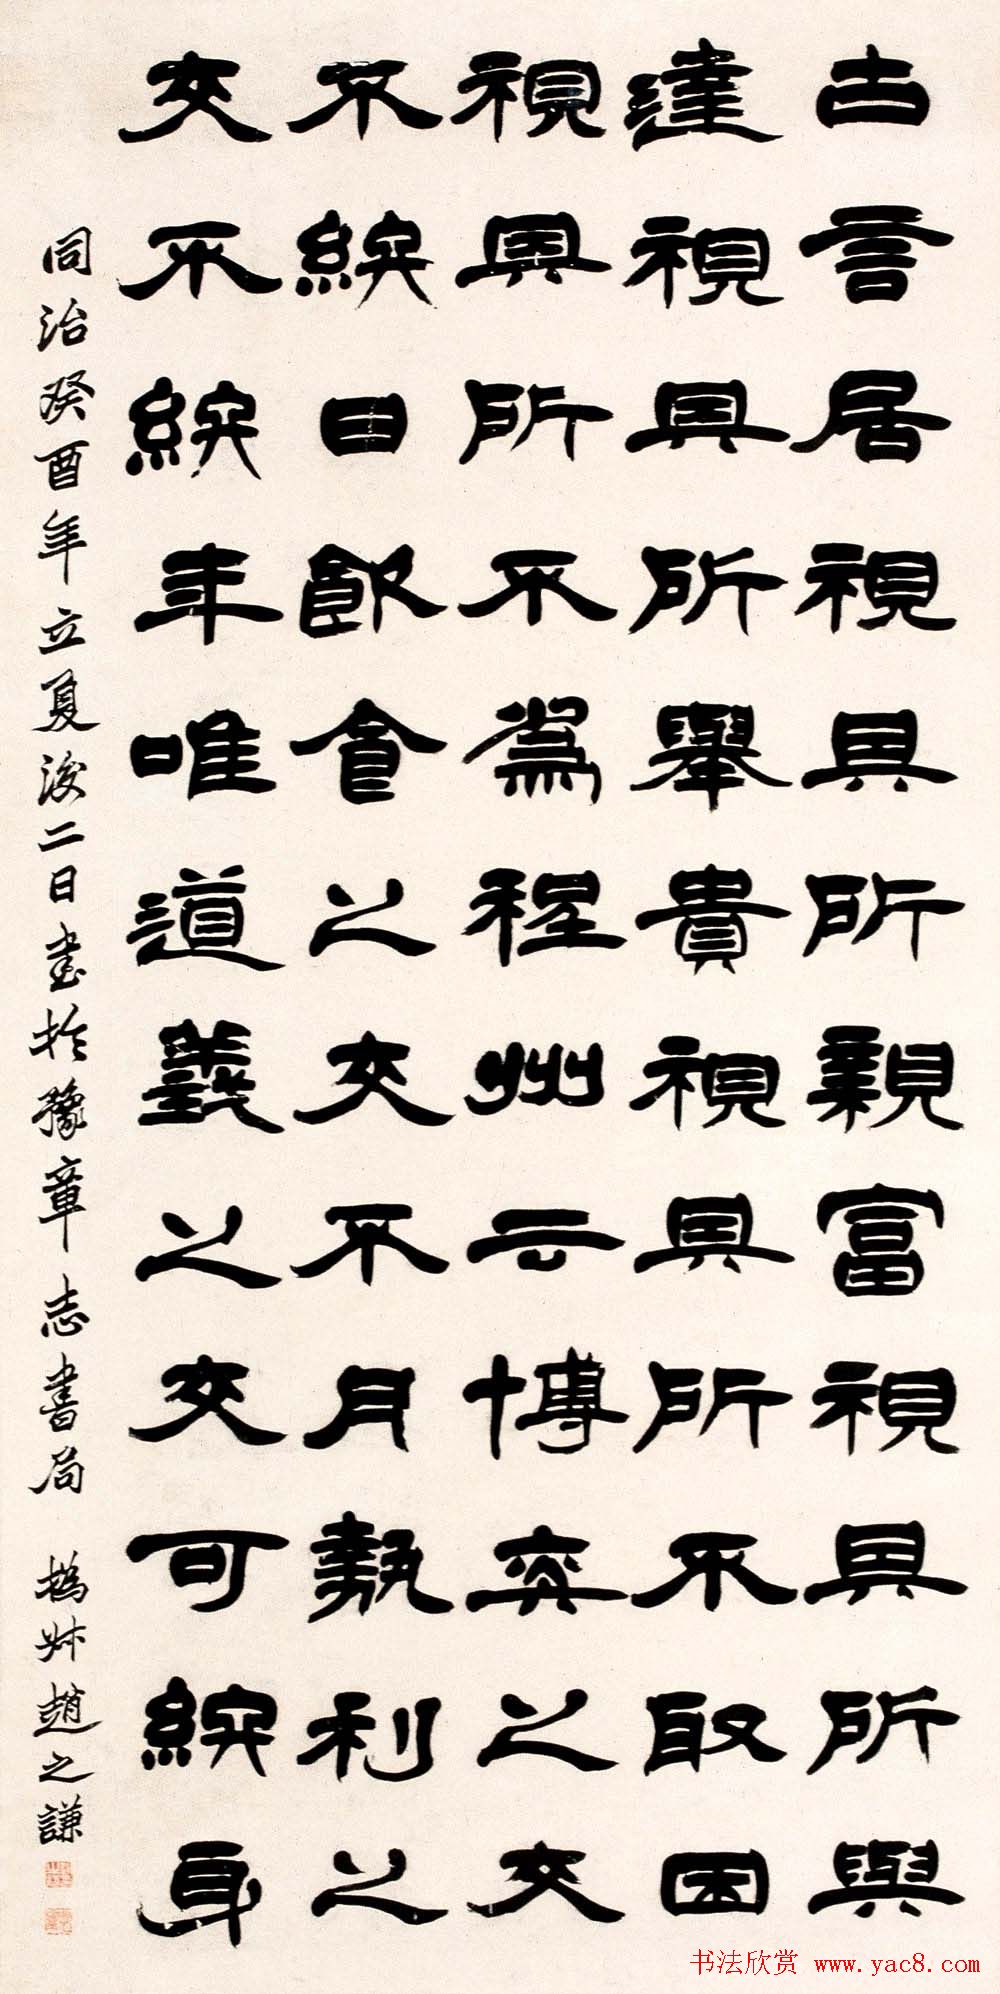 古言居視其所親富視其所與
達視其所舉貴視其所不取困
視其所不為程州云博弈之交
不終日飲食之交不月勢利之
交不終年唯道義之交可終身
同治癸酉年立夏後二日書於豫章志書局 撝叔趙之謙
书法欣赏 www.yac8.com